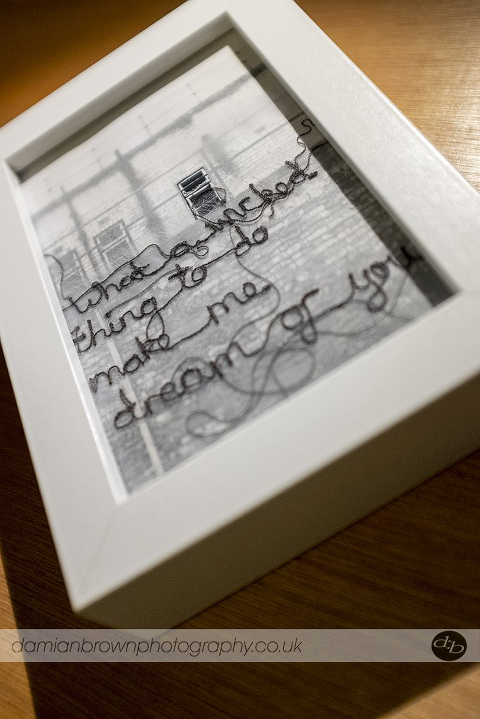 What a wicked
thing to do
make me
dream of you
damianbrownphotography.co.uk
db